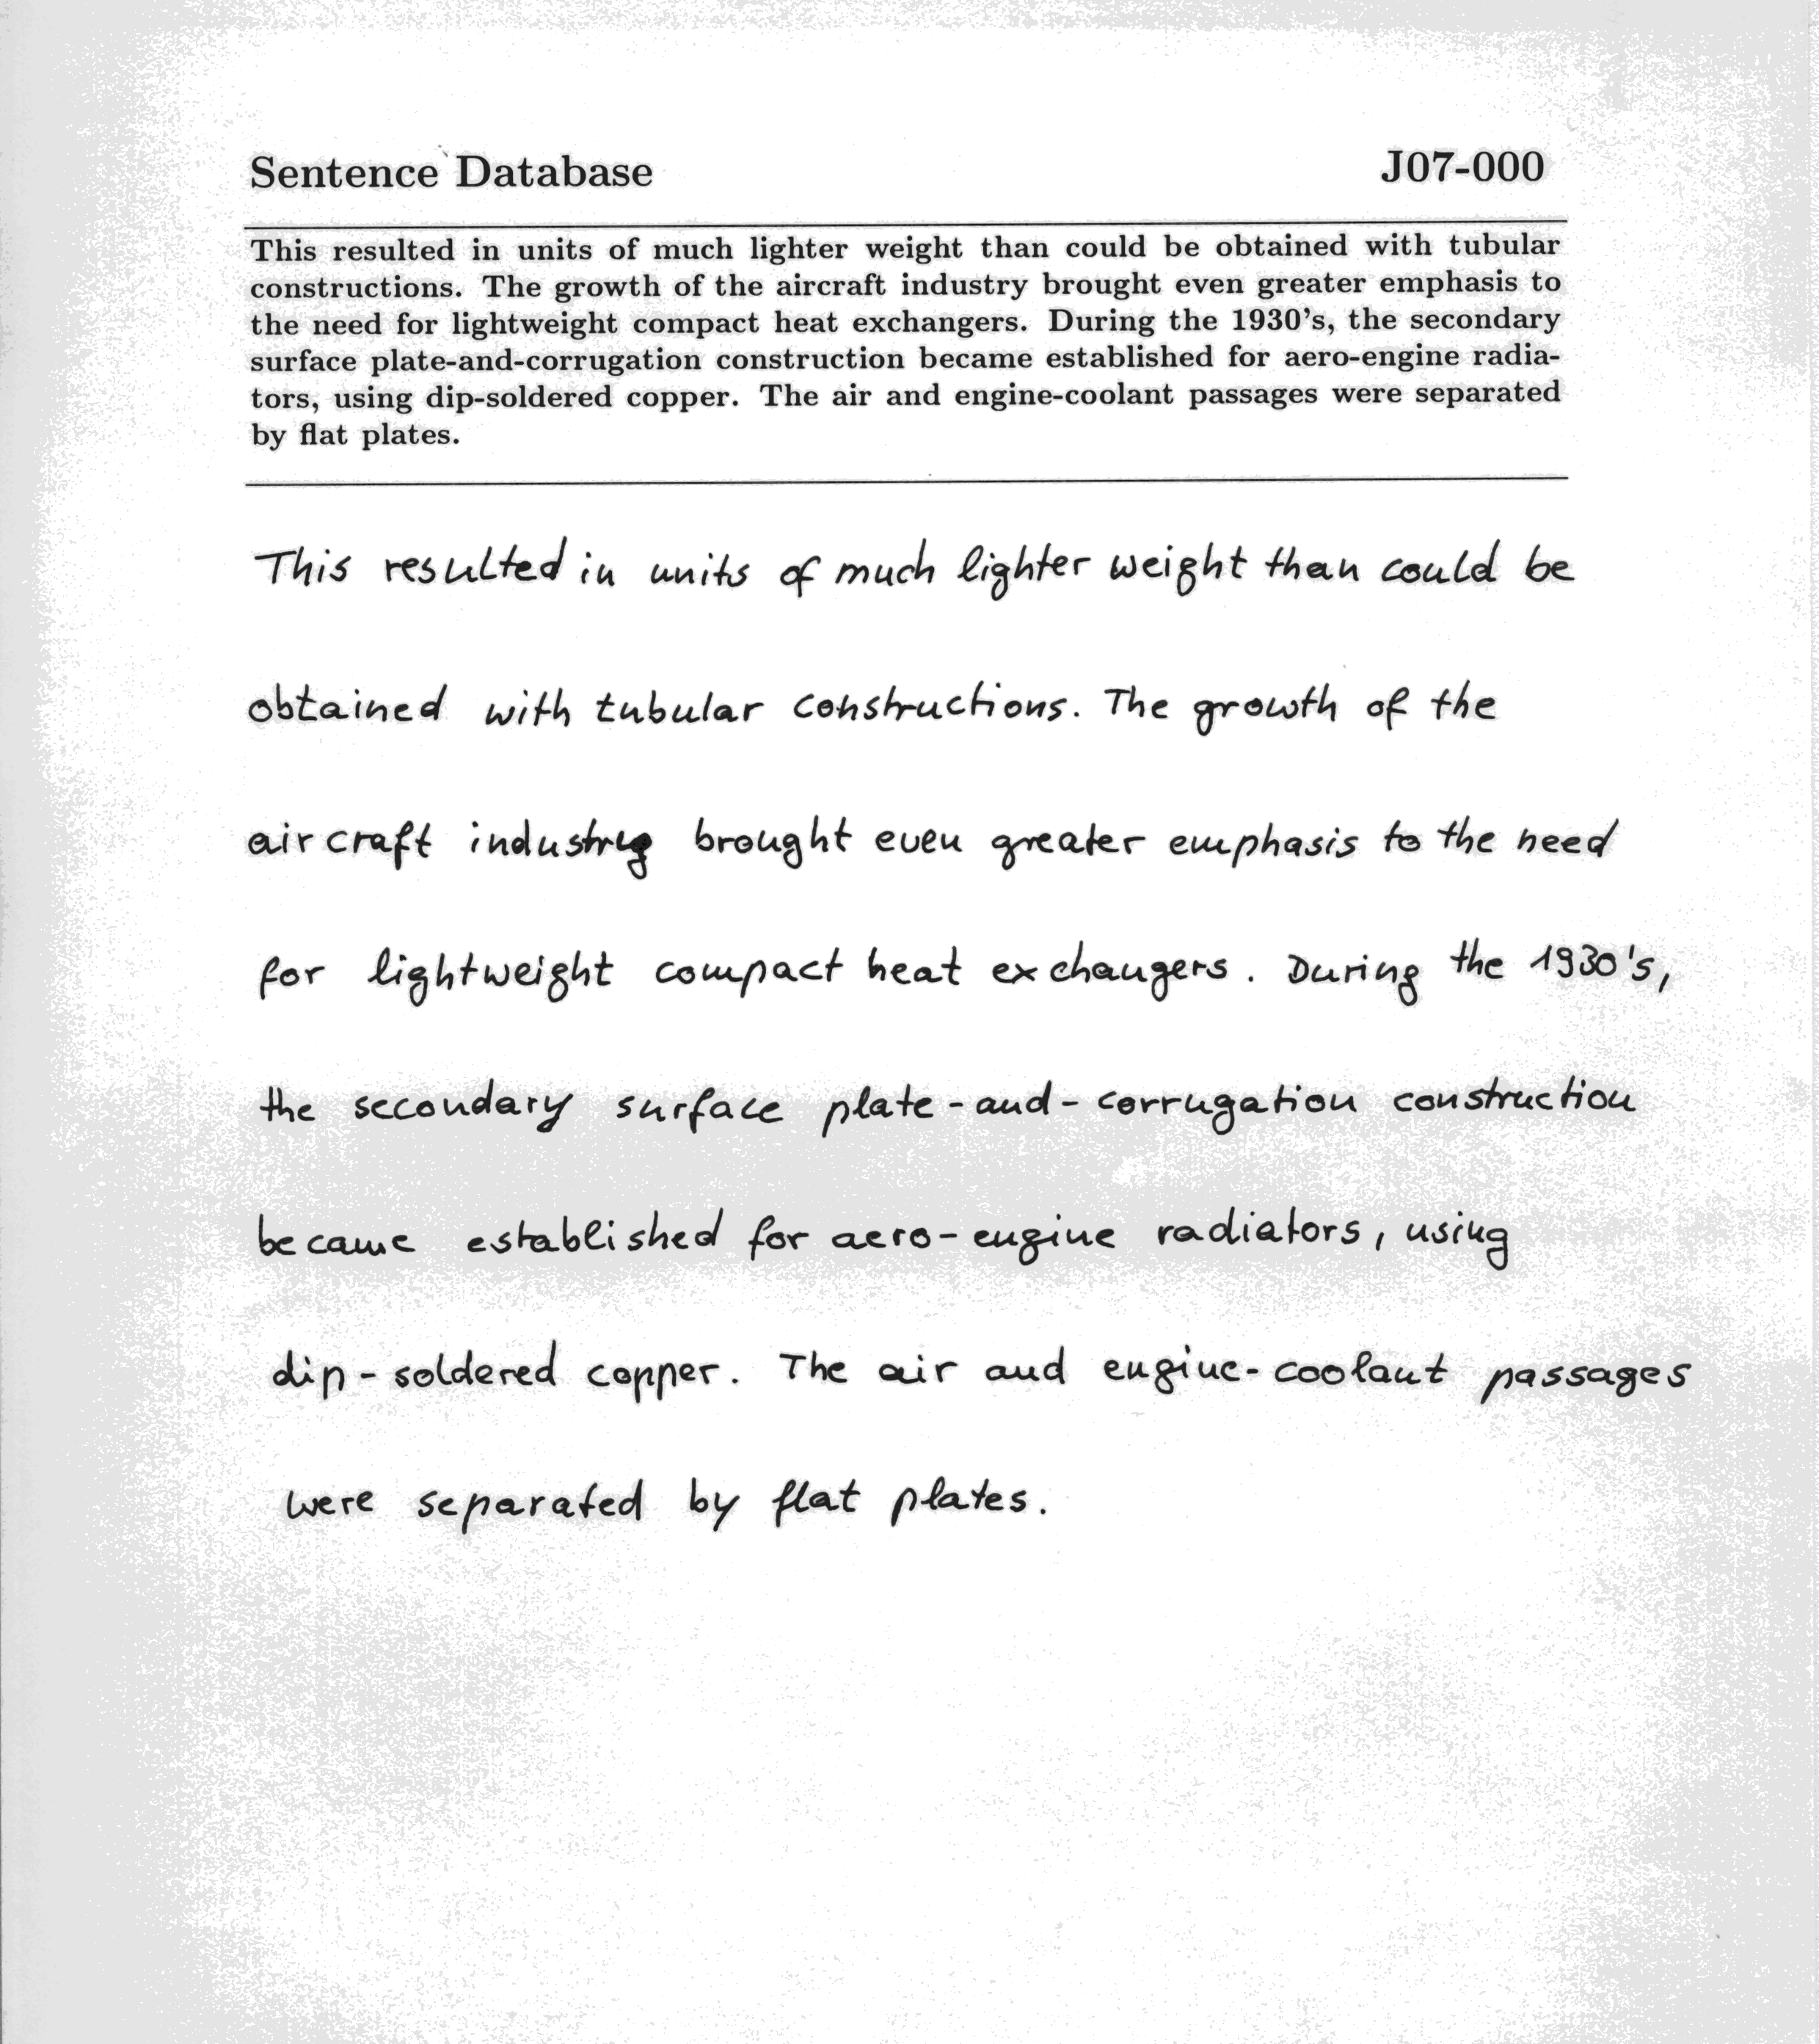 Sentence Database J07-000
This resulted in units of much lighter weight than could be obtained with tubular
constructions. The growth of the aircraft industry brought even greater emphasis to
the need for lightweight compact heat exchangers. During the 1930's, the secondary
surface plate-and-corrugation construction became established for aero-engine radia-
tors, using dip-soldered copper. The air and engine-coolant passages were separated
by flat plates.
This resulted in units of much lighter weight than could be
obtained with tubular constructions. The growth of the
aircraft industry brought even greater emphasis to the need
for lightweight compact heat exchangers. During the 1930's,
the secondary surface plate-and-corrugation construction
became established for aero-engine radiators, using
dip-soldered copper. The air and engine-coolant passages
were separated by flat plates.